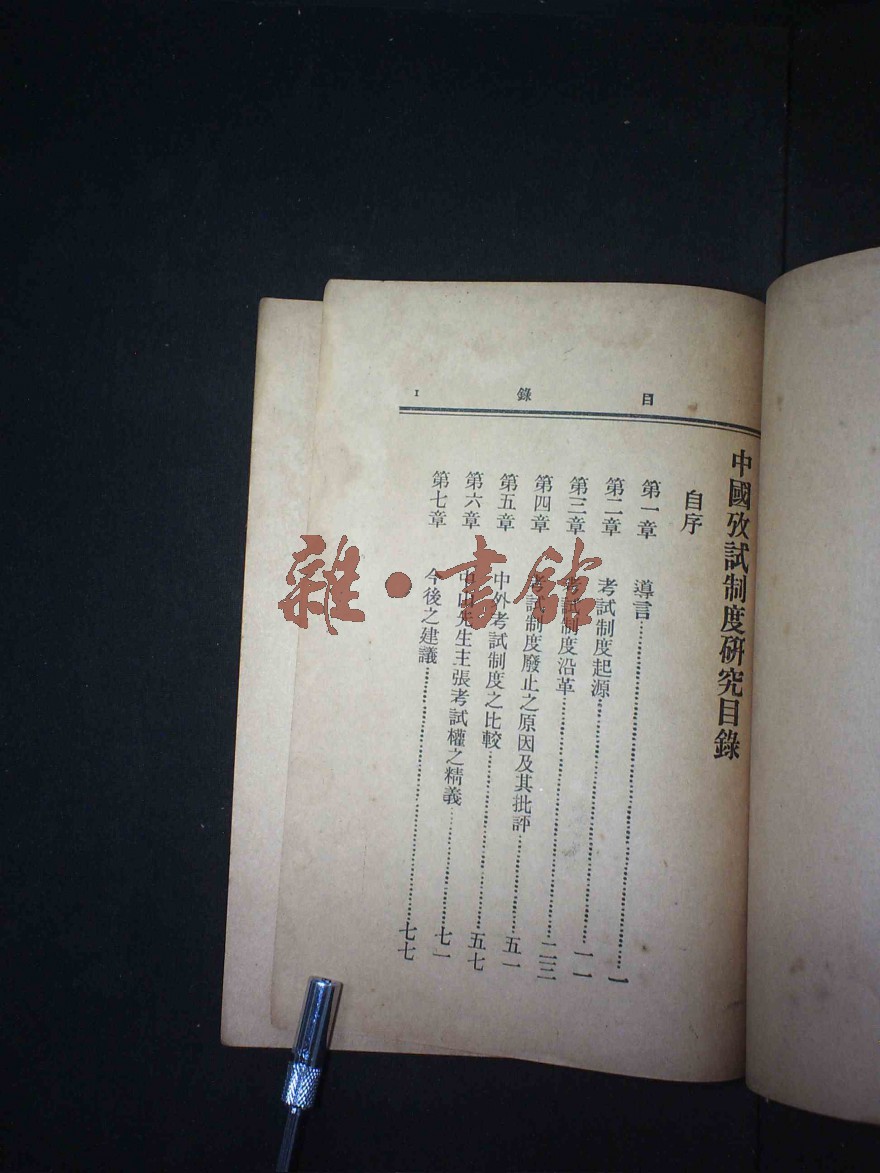 目錄 1
中國攷試制度研究目錄
自序
第一章 導言……一
第二章 考試制度起源……一一
第三章 考試制度沿革……二三
第四章 考試制度廢止之原因及其批評……五一
第五章 中外考試制度之比較……五七
第六章 中山先生主張考試權之精義……七一
第七章 今後之建議……七七
雜·書館